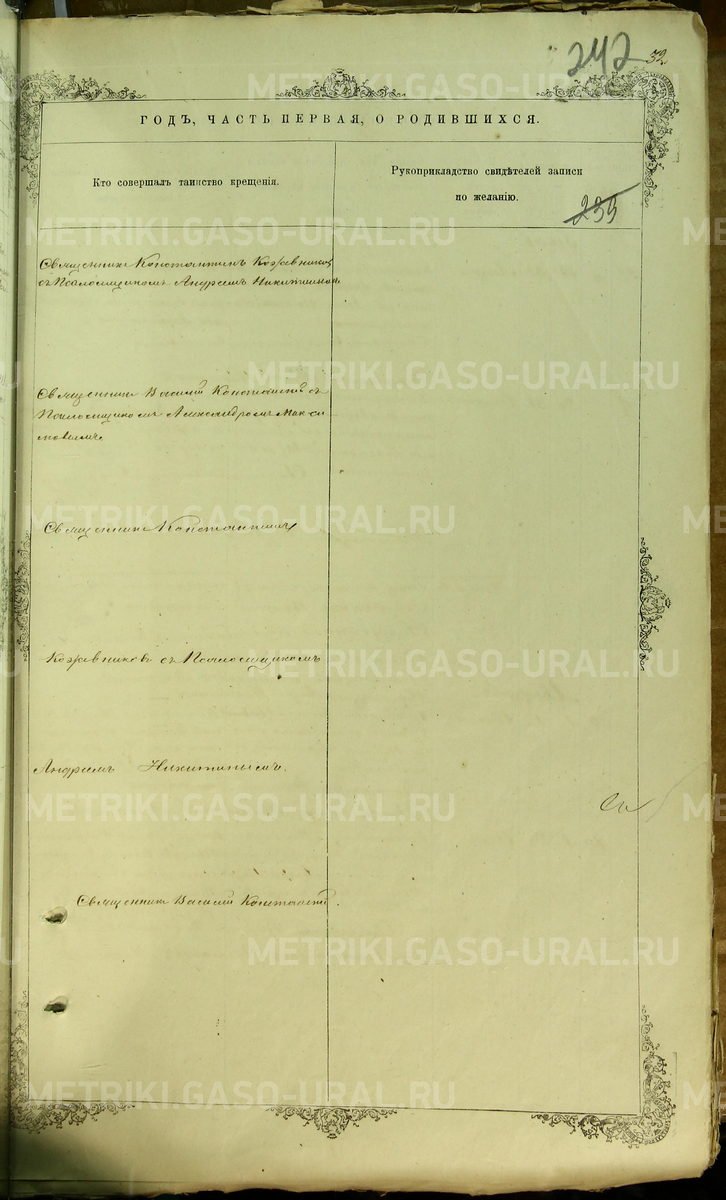 242
32
ГОДЪ, ЧАСТЬ ПЕРВАЯ, О РОДИВШИХСЯ.
Кто совершалъ таинство крещенія.
Рукоприкладство свидѣтелей записи
по желанію.
239
Священникъ Константинъ Кожевниковъ
съ Псаломщикомъ Андреемъ Никитинымъ
Священникъ Василій
съ
Псаломщикомъ Александромъ
Священникъ Константинъ
Кожевниковъ съ Псаломщикомъ
Андреемъ Никитинымъ.
Священникъ Василій
METRIKI.GASO-URAL.RU